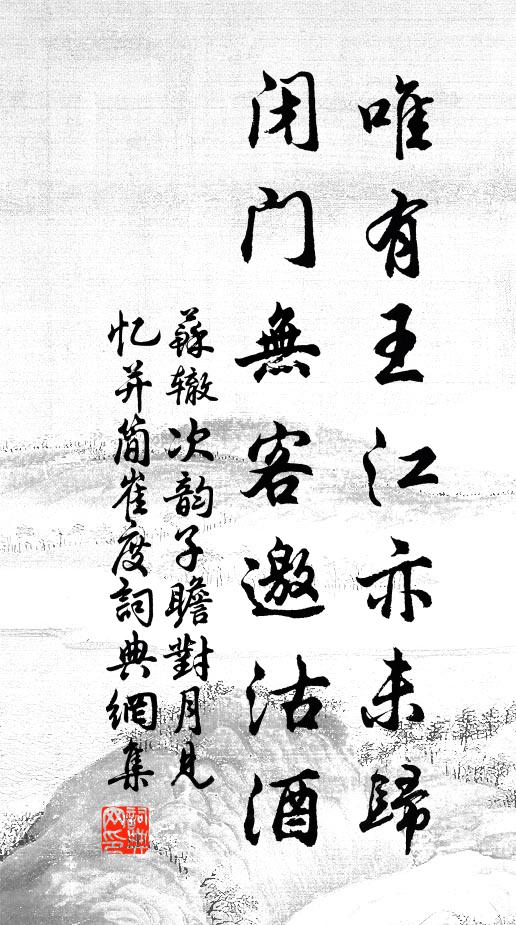 唯有王江亦未歸
闭门無客邀沽酒
蘇辙次韵子瞻對月見
忆并簡崔度詞典網集